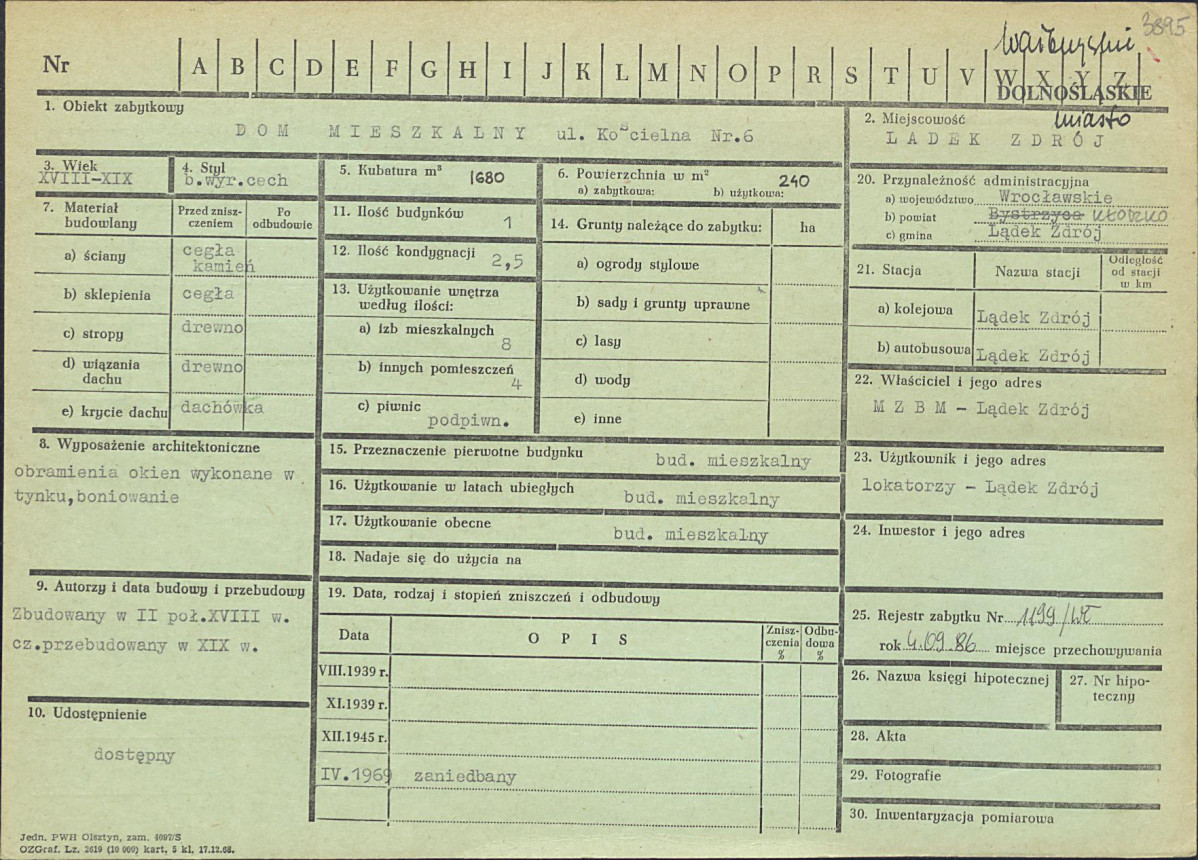 3895
wałbrzyskie
Nr A B C D E F G H I J K L M N O P R S T U V W X Y Z
DOLNOŚLĄSKIE
1. Obiekt zabytkowy
DOM MIESZKALNY ul. Kościelna Nr.6
2. Miejscowość miasto
LADEK ZDRÓJ
3. Wiek
XVIII-XIX
4. Styl
b.wyr.cech
5. Kubatura m³ 1680
6. Powierzchnia w m² 240
a) zabytkowa: b) użytkowa:
20. Przynależność administracyjna
a) województwo Wrocławskie
b) powiat Bystrzyca KŁODZKO
c) gmina Lądek Zdrój
7. Materiał budowlany
Przed zniszczeniem
Po odbudowie
a) ściany cegła kamień
b) sklepienia cegła
c) stropy drewno
d) wiązania dachu drewno
e) krycie dachu dachówka
11. Ilość budynków 1
12. Ilość kondygnacji 2,5
13. Użytkowanie wnętrza według ilości:
a) izb mieszkalnych 8
b) innych pomieszczeń 4
c) piwnic podpiwn.
14. Grunty należące do zabytku: ha
a) ogrody stylowe
b) sady i grunty uprawne
c) lasy
d) wody
e) inne
21. Stacja Nazwa stacji Odległość od stacji w km
a) kolejowa Lądek Zdrój
b) autobusowa Lądek Zdrój
22. Właściciel i jego adres
M Z B M – Lądek Zdrój
8. Wyposażenie architektoniczne
obramienia okien wykonane w
tynku,boniowanie
15. Przeznaczenie pierwotne budynku bud. mieszkalny
16. Użytkowanie w latach ubiegłych bud. mieszkalny
17. Użytkowanie obecne bud. mieszkalny
18. Nadaje się do użycia na
23. Użytkownik i jego adres
lokatorzy – Lądek Zdrój
24. Inwestor i jego adres
9. Autorzy i data budowy i przebudowy
Zbudowany w II poł.XVIII w.
cz.przebudowany w XIX w.
19. Data, rodzaj i stopień zniszczeń i odbudowy
Data OPIS Zniszczenia % Odbudowa %
VIII.1939 r.
XI.1939 r.
XII.1945 r.
IV.1969 zaniedbany
25. Rejestr zabytku Nr 1199/WŁ
rok 4.09.86 miejsce przechowywania
26. Nazwa księgi hipotecznej
27. Nr hipoteczny
28. Akta
29. Fotografie
30. Inwentaryzacja pomiarowa
10. Udostępnienie
dostępny
Jedn. PWH Olsztyn, zam. 4097/S
OZGraf. Lz. 2619 (10 000) kart. 5 kl. 17.12.68.